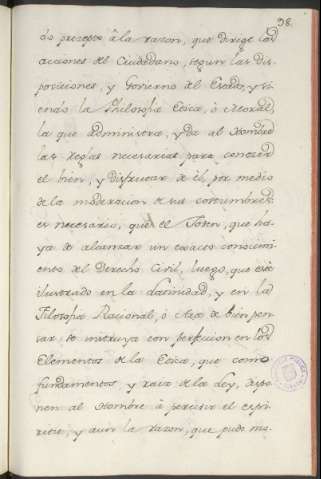 98.
do precepto â la razon, que dirige las
acciones del Ciudadano, segun las dis-
posiciones, y Govierno del Estado, y si-
endo la Philosofia Etica, ô Moral
la que administra, y da al Hombre
las Reglas necesarias para conocer
el bien, y disfrutar de él, por medio
de la moderacion de sus costumbres
es necesario, que el Joven, que ha-
ya de alcanzar un exacto conocimi-
ento del Derecho Civil, luego, que esté
ilustrado en la Latinidad, y en la
Filosofia Racional, ó Arte de bien pen-
sar, se instruya con perfeccion en los
Elementos de la Etica, que como
fundamentos, y raiz de la Ley, dispo-
nen al Hombre â percivir el espi-
ritu, y aun la razon, que pudo mo-